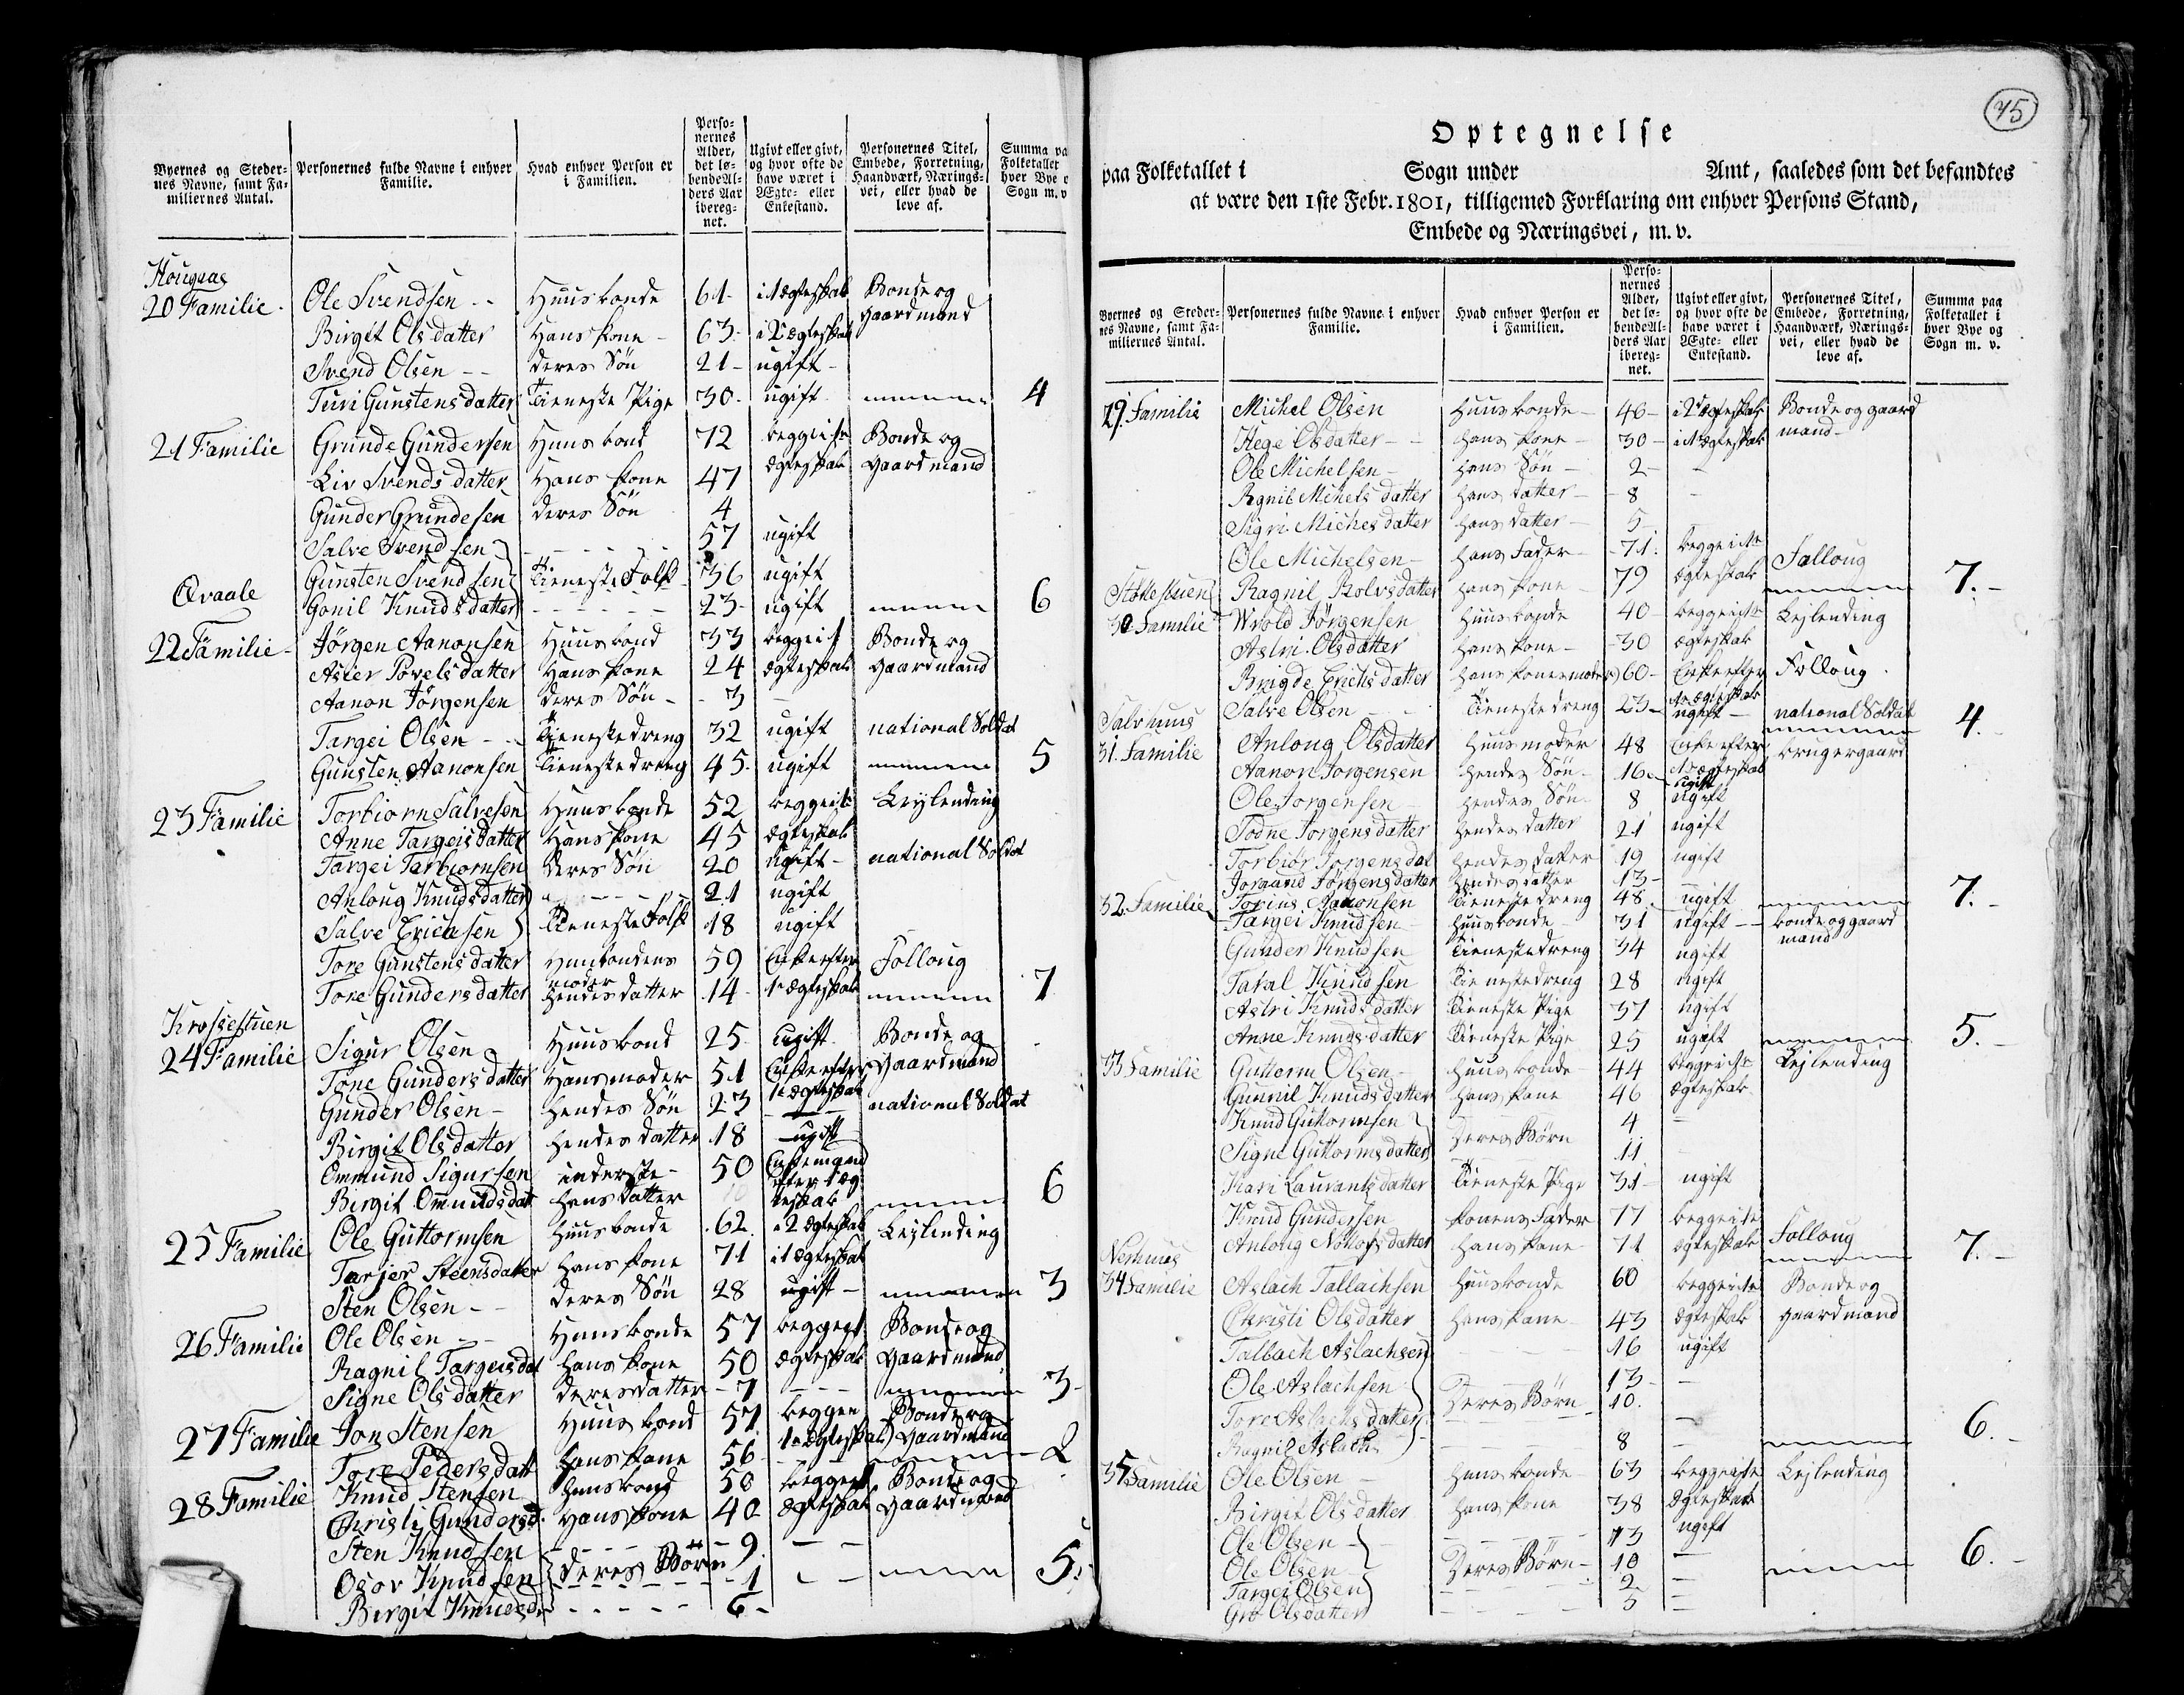 Byernes og Steder-
nes Navne, samt Fa-
miliernes Antal.
Personernes fulde Navne i enhver
Familie.
Hvad enhver Person er
i Familien.
Perso-
nernes
Alder,
det lø-
bende Al-
ders Aar
ibereg-
net.
Ugivt eller givt,
og hvor ofte de
have været i
Ægte- eller
Enkestand.
Personernes Titel,
Embede, Forretning,
Haandværk, Nærings-
vei, eller hvad de
leve af.
Summa pa
Folketallet
hver Bye o
Sogn m. v
20 Familie. Ole Svendsen Huusbonde 61 i 1 ægteskab Bonde og
Birgit Olsdatter Hans kone 63 i 2 ægteskab gaardmand
Svend Olsen deres Sön 21 ugift
Turi Gunstensdatter Tieneste Pige 30 ugift 4
21 Familie Grunde Gundersen Huusbond 72 begge i 1ste Bonde og
Liv Svends datter Hans kone 47 ægteskab gaardmand
Gunder Grundesen deres Sön 4
Salve Svendsen 57 ugift
Gunsten Svendsen Tieneste Folk 36 ugift
Qvaale Gonil Knudsdatter 23 ugift 6
22 Familie Jörgen Aanonsen Huusbond 33 begge i 1 Bonde og
Asier Povelsdatter Hans kone 24 ægteskab gaardmand
Aanon Jörgensen deres Sön 3
Targei Olsen Tienestedreng 32 ugift national Soldat
Gunsten Aanonsen Tienestedreng 45 ugift 5
23 Familie Torbiorn Salvesen Huusbonde 52 begge i 1 Leylending
Anne Targeisdatter Hans kone 45 ægteskab
Targei Tarbiornsen deres Sön 20 ugift national Soldat
Anloug Knudsdatter 21 ugift
Salve Ericksen Tieneste Folk 18 ugift
Tore Gunstensdatter Huusbondens
moder 59 Enke efter Folloug
Tore Gundersdatter hendes datter 14 1te ægteskab 7
Krossestuen
24 Familie Sigur Olsen Huusbond 25 ugift Bonde og
Tone Gundersdatter Hans moder 51 Enke efter gaardmand
1te ægteskab
Gunder Olsen hendes Sön 23 national Soldat
Birgit Olsdatter hendes datter 18 ugift
Ommund Sigursen inderste 50 Enkemand
efter 1 æg
Birgit Ommundsdat hans datter teskab 6
25 Familie Ole Guttormsen Huusbonde 62 i 2 ægteskab Leylending
Tarjer Steensdatter hans kone 71 i 1 ægteskab
Sten Olsen deres Sön 28 ugift 3
26 Familie Ole Olsen Huusbonde 57 begge i 1 Bonde og
Ragnil Targeisdat hans kone 50 ægteskab gaardmand
Signe Olsdatter deres datter 7 3
27 Familie Jon Stensen Huusbond 57 begge i Bonde og
Tore Pedersdatt hans kone 56 1te ægteskab gaardmand 2
28 Familie Knud Stensen Huusbond 50 begge i 1 Bonde og
Christi Gundersd. Hans kone 40 ægteskab gaardmand
Sten Knudsen 9
Osov Knudsen deres Börn 1 5
Birgit Knudsd 6
75
Optegnelse
paa Folketallet i Sogn under Amt, saaledes som det befandtes
at være den 1ste Febr. 1801, tilligemed Forklaring om enhver Persons Stand,
Embede og Næringsvei, m. v.
Byernes og Steder-
nes Navne, samt Fa-
miliernes Antal.
Personernes fulde Navne i enhver
Familie.
Hvad enhver Person er
i Familien.
Perso-
nernes
Alder,
det lø-
bende Al-
ders Aar
ibereg-
net.
Ugivt eller givt,
og hvor ofte de
have været i
Ægte- eller
Enkestand.
Personernes Titel,
Embede, Forretning,
Haandværk, Nærings-
vei, eller hvad de
leve af.
Summa paa
Folketallet i
hver Bye og
Sogn m. v.
29 Familie Michel Olsen Huusbonde 46 i 2 ægteskab Bonde og gaard
Hege Olsdatter hans kone 30 i 1 ægteskab mand
Ole Michelsen hans Sön 2
Ragnil Michelsdatter hans datter 8
Sigri Michesdatter hans datter 5
Ole Michelsen hans Fader 71 begge i 1te
Ragnil Rolvsdatter hans kone 79 ægteskab Folloug 7.
Stokestuen
30 Familie Wrold Jörgensen Huusbonde 40 begge i 1te Lejlending
Aslri Olsdatter hans kone 30 ægteskab
Brigde Erichsdatter hans kones moder 60 Enke efter Folloug
1te ægteskab
Salve Olsen Tienestedreng 23 ugift national Soldat 4.
Salvhuus
31. Familie Anloug Olsdatter Huusmoder 48 Enke efter bruger gaard
1te ægteskab
Aanon Jorgensen hendes Sön 16 ugift
Ole Jorgensen hendes Sön 8 ugift
Todne Jorgensdatter hendes datter 21 ugift
Torbior Jorgensdat hendes datter 19 ugift
Jorgund Jörgensdatter hendes datter 13
Torius Aanonsen Tienestedreng 48 ugift 7.
32. Familie Targei Knudsen Huusbonde 31 ugift bonde og gaard
mand
Gunder Knudsen Tienestedreng 34 ugift
Taral Knudsen Tienestedreng 28 ugift
Aslri Knudsdatter Tieneste Pige 37 ugift
Anne Knudsdatter Tieneste Pige 25 ugift 5.
33 Familie Guttorm Olsen Huusbonde 44 begge i 1te Lejlending
Gunnil Knudsdatter hans kone 46 ægteskab
Knud Guttormsen 4
Signe Guttormsdatter Deres Börn 11
Kari Laurantsdatter Tieneste Pige 31 ugift
Knud Gundersen konens Fader 77 begge i 1te
Anloug Notlofsdatter hans kone 71 ægteskab Folloug 7.
Nerhuus
34 Familie Aslach Tallachsen Huusbonde 60 begge i 1te Bonde og
Christi Olsdatter hans kone 43 ægteskab gaardmand
Talbach Aslachsen 16 ugift
Ole Aslachsen 13
Tore Aslachsdatter Deres Börn 10.
Ragnil Aslachs 8 6.
35 Familie Ole Olsen Huusbonde 63 begge i 1te Lejlending
Birgit Olsdatter hans kone 38 Ægteskab
Ole Olsen 13 ugift
Ole Olsen Deres Börn 10 6.
Targei Olsen 2
Gro Olsdatter 5